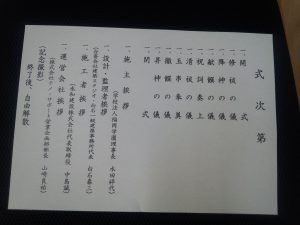 式次第
一、開式
一、修祓の儀
一、降神の儀
一、献饌の儀
一、祝詞奏上
一、清祓の儀
一、玉串奉奠
一、撤饌の儀
一、昇神の儀
一、閉式
一、施主挨拶
(学校法人福岡学園理事長 水田祥代)
一、設計・監理者挨拶
一、施工者挨拶
一、運営会社挨拶
(記念撮影)
終了後、自由解散